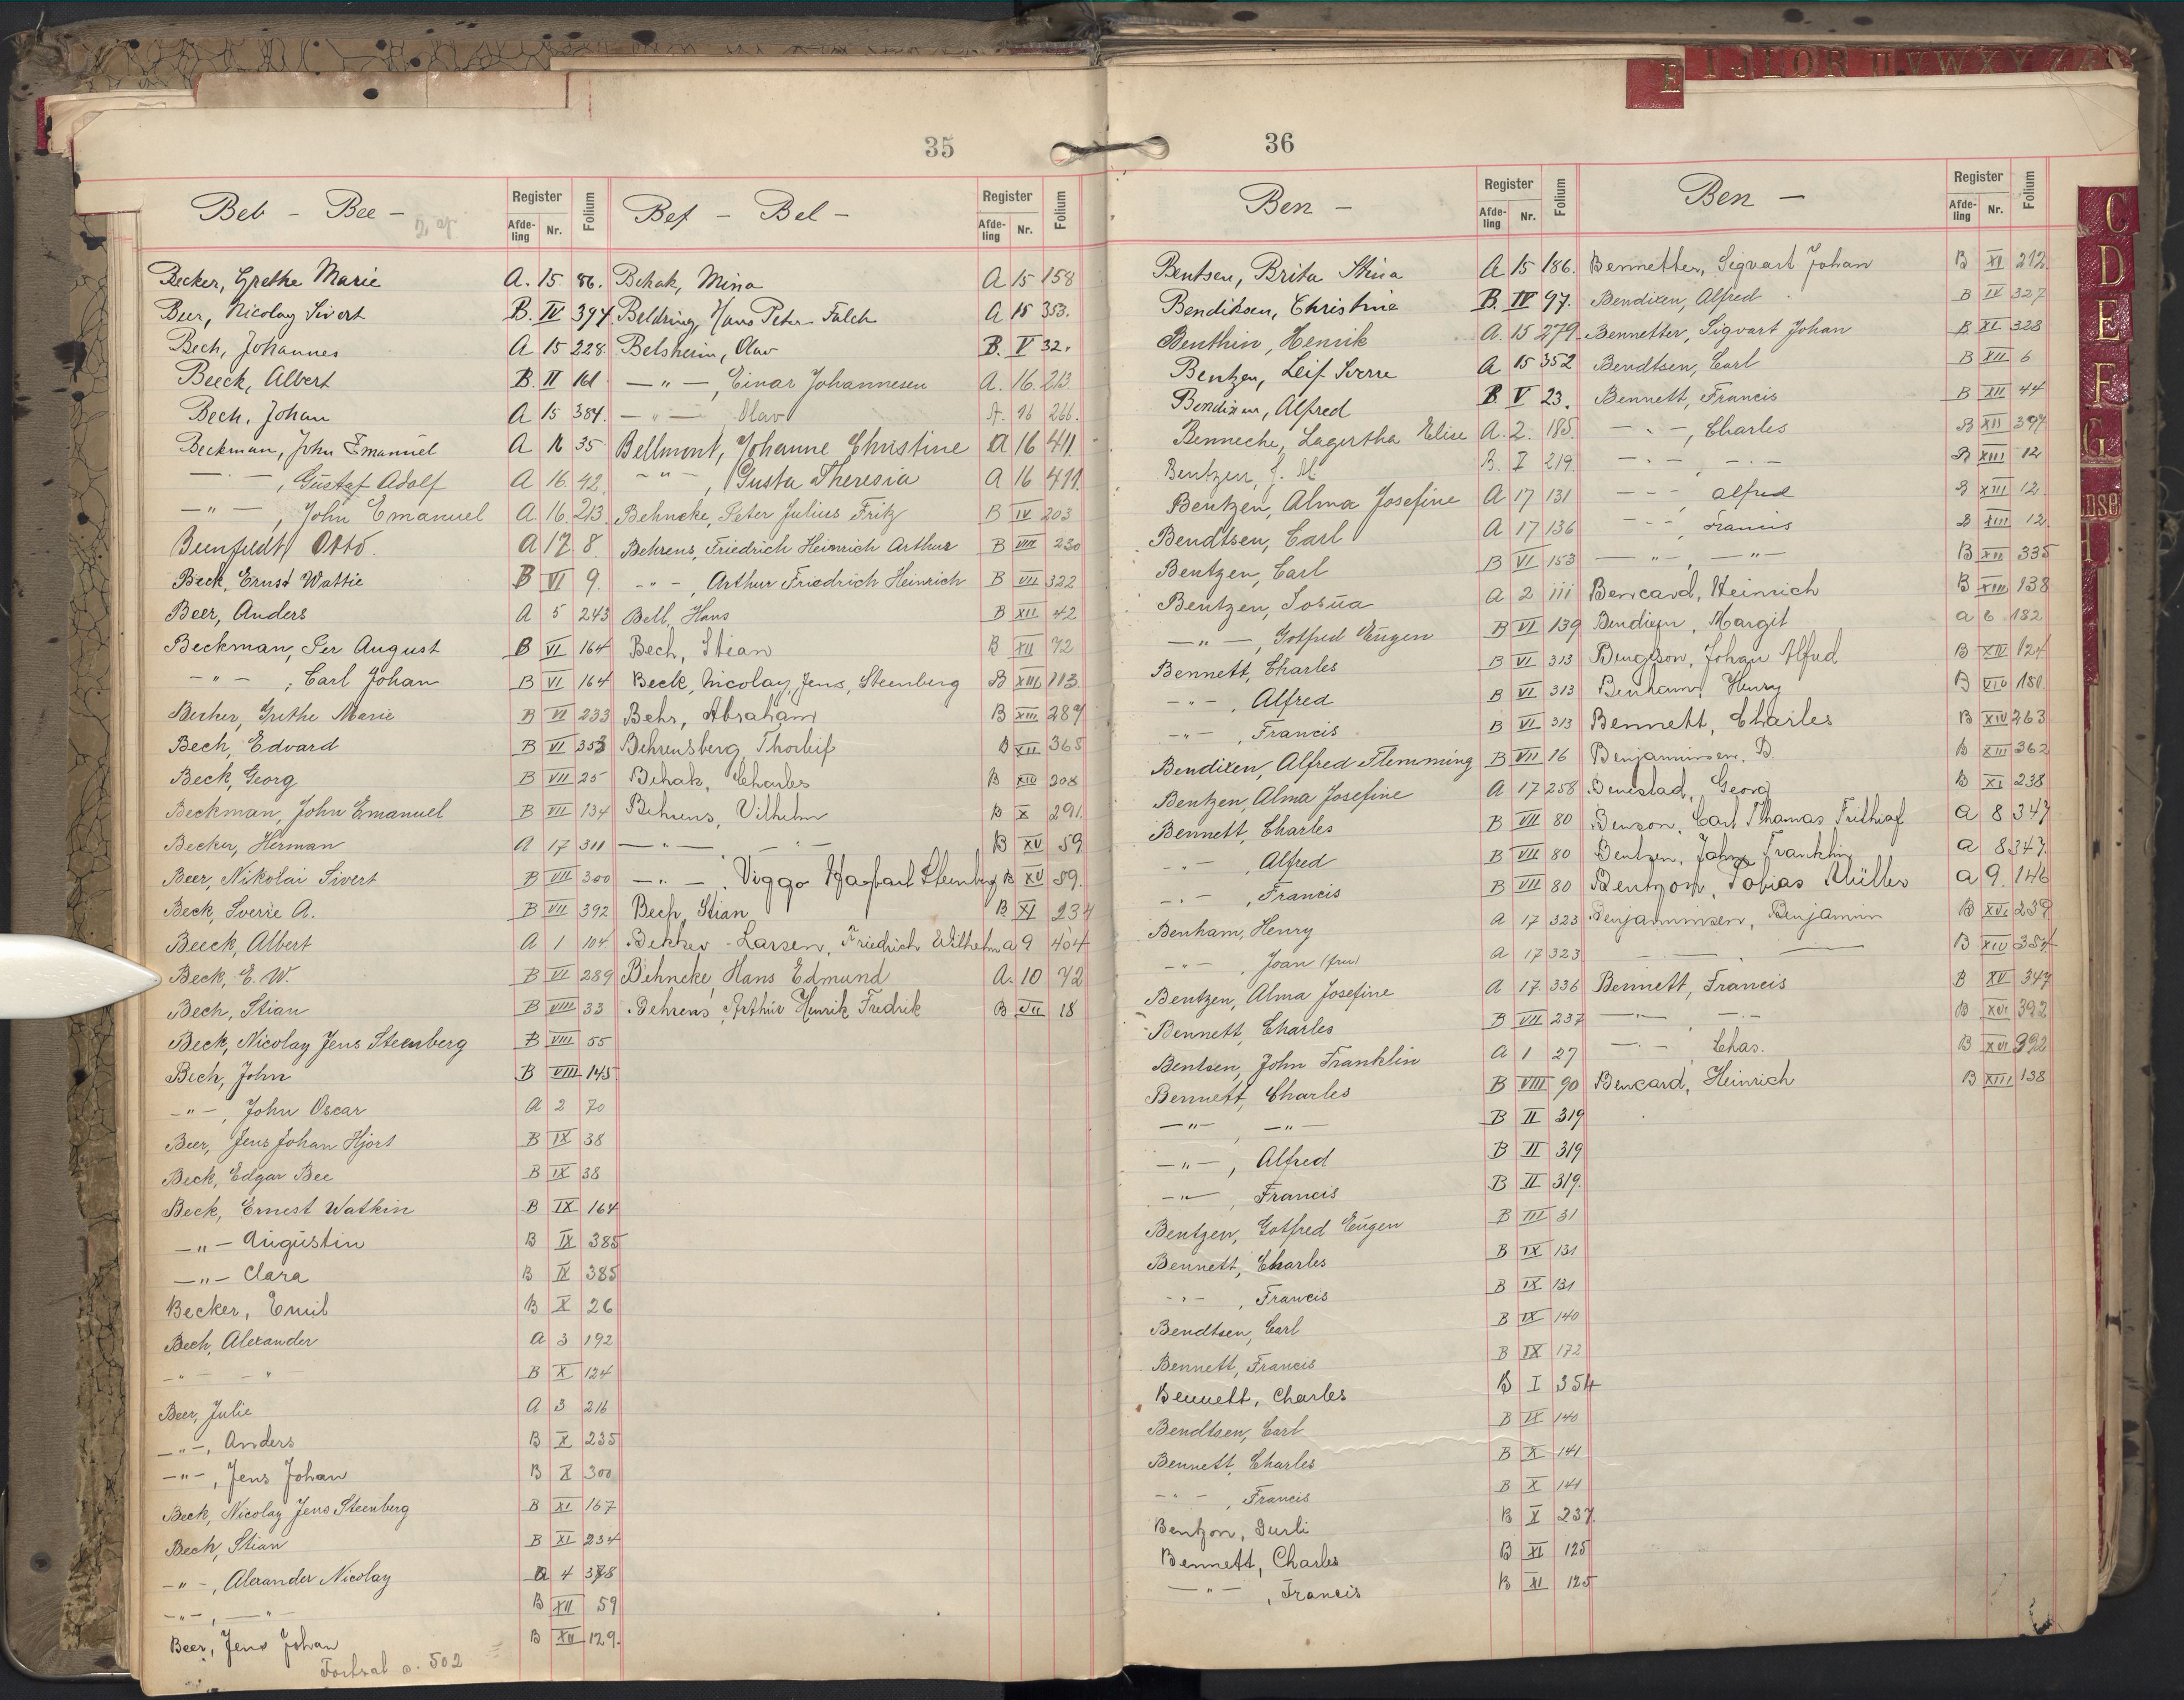 35
Beb - Bee -
Register
Afde-ling Nr. Folium
Becker, Grethe Marie A. 15 86.
Beer, Nicolay Sivert B. IV 394
Bech, Johannes A 15 228.
Beeck, Albert B. II 161
Bech, Johan A 15 384.
Beckman, John Emanuel A 16 35
— " —, Gustaf Adolf A 16 42
— " —, John Emanuel A. 16. 213
Otto. A 17 8
Beck, Ernst Wattie B VI 9.
Beer, Anders A 5 243
Beckman, Per August B VI 164
— " —, Carl Johan B VI 164
Becker, Grethe Marie B VI 233
Bech, Edvard B VI 353
Beck, Georg B VII 25
Beckman, John Emanuel B VII 134
Becker, Herman A 17 311
Beer, Nikolai Sivert B VII 300
Beck, Sverre A. B VII 392
Beeck, Albert A 1 104
Beck, E. W. B VI 289
Bech, Stian B VIII 33
Beck, Nicolay Jens Steenberg B VIII 55
Bech, John B VIII 145
— " —, John Oscar A 2 70
Beer, Jens Johan Hjort B IX 38
Beck, Edgar Bee B IX 38
Beck, Ernest Watkin B IX 164
— " — Augustin B IX 385
— " — Clara B IX 385
Becker, Emil B X 26
Bech, Alexander A 3 192
— " — — " B X 124
Beer, Julie A 3 216
— " —, Anders B X 235
— " —, Jens Johan B X 300
Beck, Nicolay Jens Steenberg B XI 167
Bech, Stian B XI 234
— " —, Alexander Nicolay A 4 378
— " —, — " — B XII 59
Beer, Jens Johan B XII 129.
502
Bef - Bel -
Register
Afde-ling Nr. Folium
Behak, Mina A 15 158
Beldring, Hans Peter Falch A 15 353.
Belsheim, Olav B. V 32.
— " —, Einar Johannesen A. 16. 213
— " — Olav A. 16 266.
Bellmont, Johanne Christine A 16 411
— " —, Gusta Theresia A 16 411
Behncke, Peter Julius Fritz B IV 203
Behrens, Friedrich Heinrich Arthur B VIII 230
— " —, Arthur Friedrich Heinrich B VII 322
Bell, Hans B XII 42
Bech, Stian B XII 72
Beck, Nicolay, Jens, Steenberg B XIII 113
Behr, Abraham B XIII 287
Behrensberg, Thorleif B XII 365
Behak, Charles B XIV 308
Behrens, Vilhelm B X 291.
— " — — " — B XV 59
— " —, Viggo Steenberg B XV 89.
Bech, Stian B XI 234
Bekker-Larsen, Friedrich Wilhelm a 9 404
Behncke, Hans Edmund A. 10 72
Behrens, Arthur Henrik Fredrik B VII 18
36
Ben -
Register
Afde-ling Nr. Folium
Bentsen, Brita Stina A 15 186.
Bendiksen, Christine B. IV 97.
Benthin, Henrik A. 15 279
Bentzen, Leif Sverre A 15 352
Bendixen, Alfred B V 23.
Benneche, Lagertha Elise A. 2. 185.
Bentzen, J. M. B. I 219.
Bentzen, Alma Josefine A 17 131
Bendtsen, Carl A 17 136
Bentzen, Carl B VI 153
Bentzen, Josua A 2 111
— " —, Gotfred Eugen B VI 139
Bennett, Charles B VI 313
— " —, Alfred B VI 313
— " —, Francis B VI 313
Bendixen, Alfred Flemming B VII 16
Bentzen, Alma Josefine A 17 258
Bennett, Charles B VII 80
— " —, Alfred B VII 80
— " —, Francis B VII 80
Benham, Henry A 17 323
— " —, Joan (fru) A 17 323
Bentzen, Alma Josefine A 17 336
Bennett, Charles B VII 237
Bentsen, John Franklin A 1 27
Bennett, Charles B VIII 90
— " —, — " — B II 319
— " —, Alfred B II 319
— " —, Francis B II 319.
Bentzen, Gotfred Eugen B III 31
Bennett, Charles B IX 131
— " —, Francis B IX 131
Bendtsen, Carl B IX 140
Bennett, Francis B IX 172
Bennett, Charles B I 354
Bendtsen, Carl B IX 140
Bennett, Charles B X 141
— " —, Francis B X 141
Bentzon, Gurli B X 237.
Bennett, Charles B XI 125
— " —, Francis B XI 125
Ben -
Register
Afde-ling Nr. Folium
Bennetter, Sigvart Johan B XI 212
Bendixen, Alfred B IX 327
Bennetter, Sigvart Johan B XI 328
Bendtsen, Carl B XII 6
Bennett, Francis B XII 44
— " —, Charles B XII 397
— " — — " — B XIII 12
— " —, Alfred B XIII 12
— " —, Francis B XIII 12
— " —, — " — B XII 335
Bencard, Heinrich B XIII 138
Bendixen, Margit a 6 132
Bengtson, Johan Alfred B XIV 124
Benham, Henry B XIV 150
Bennett, Charles B XIV 263
Benjaminsen, B. B XIII 362
Benestad, Georg B XI 238
Benson, Carl Thomas Frithjof a 8 347
Bentzen, John Franklin a 8 347.
Bentzon, Tobias Müller a 9. 146
Benjaminsen, Benjamin B XVI 239
— — B XIV 354
Bennett, Francis B XV 347
— " —, — " — B XVI 392
— " — Chas. B XVI 392
Bencard, Heinrich B XIII 138
E I J L O R U V W X Y Z
C
D
E
F
G
H